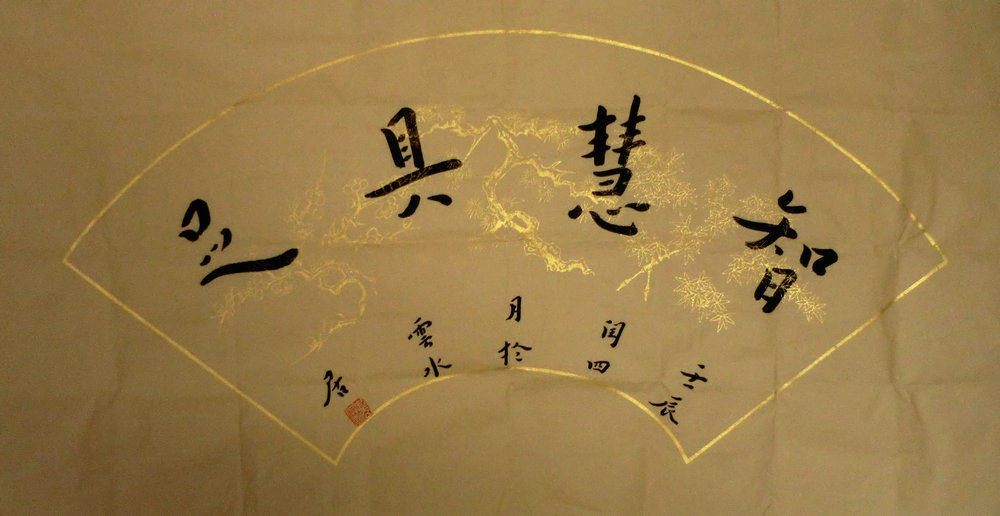 智慧具足
壬辰
闰四
月於
雲水
居